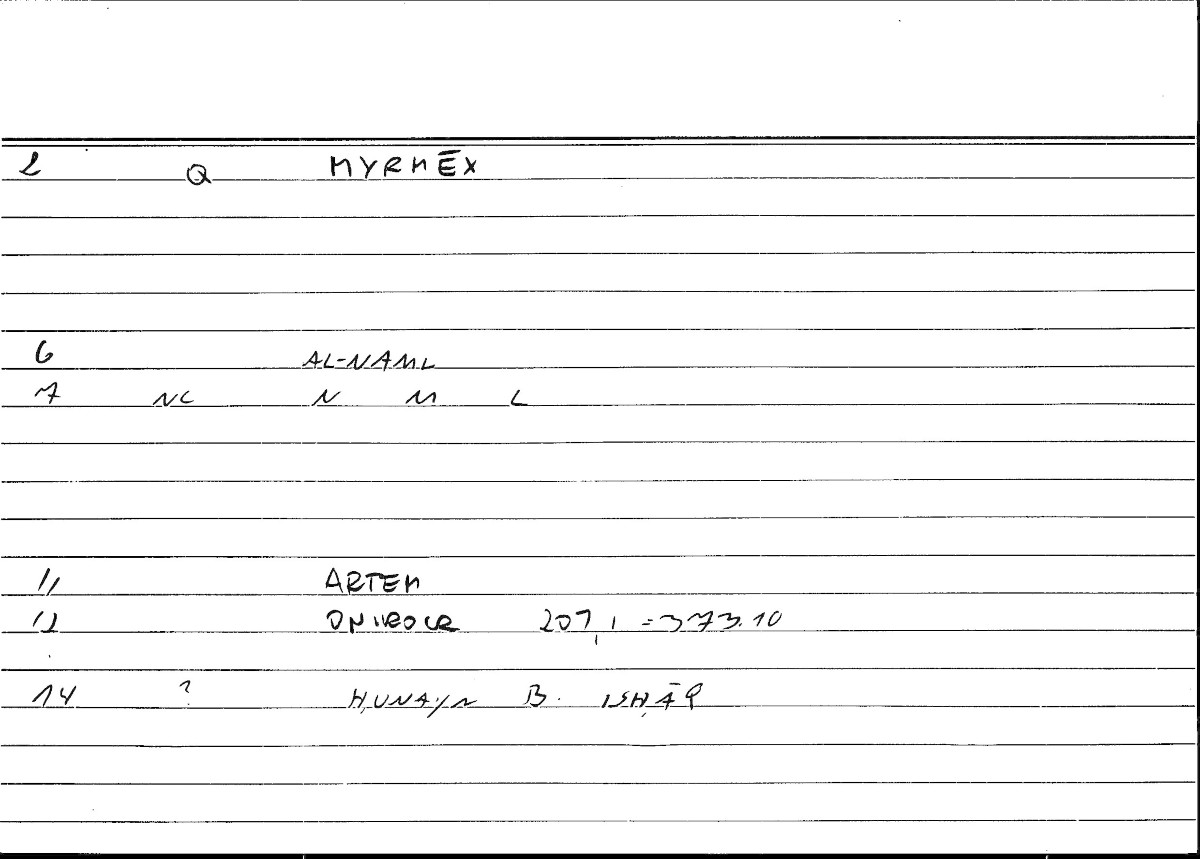 2 Q MYRMĒX
6 AL-NAML
7 NC N M L
11 ARTEM
12 ONIROCR 207,1 = 373.10
14 ? ḤUNAYN B. ISḤĀQ